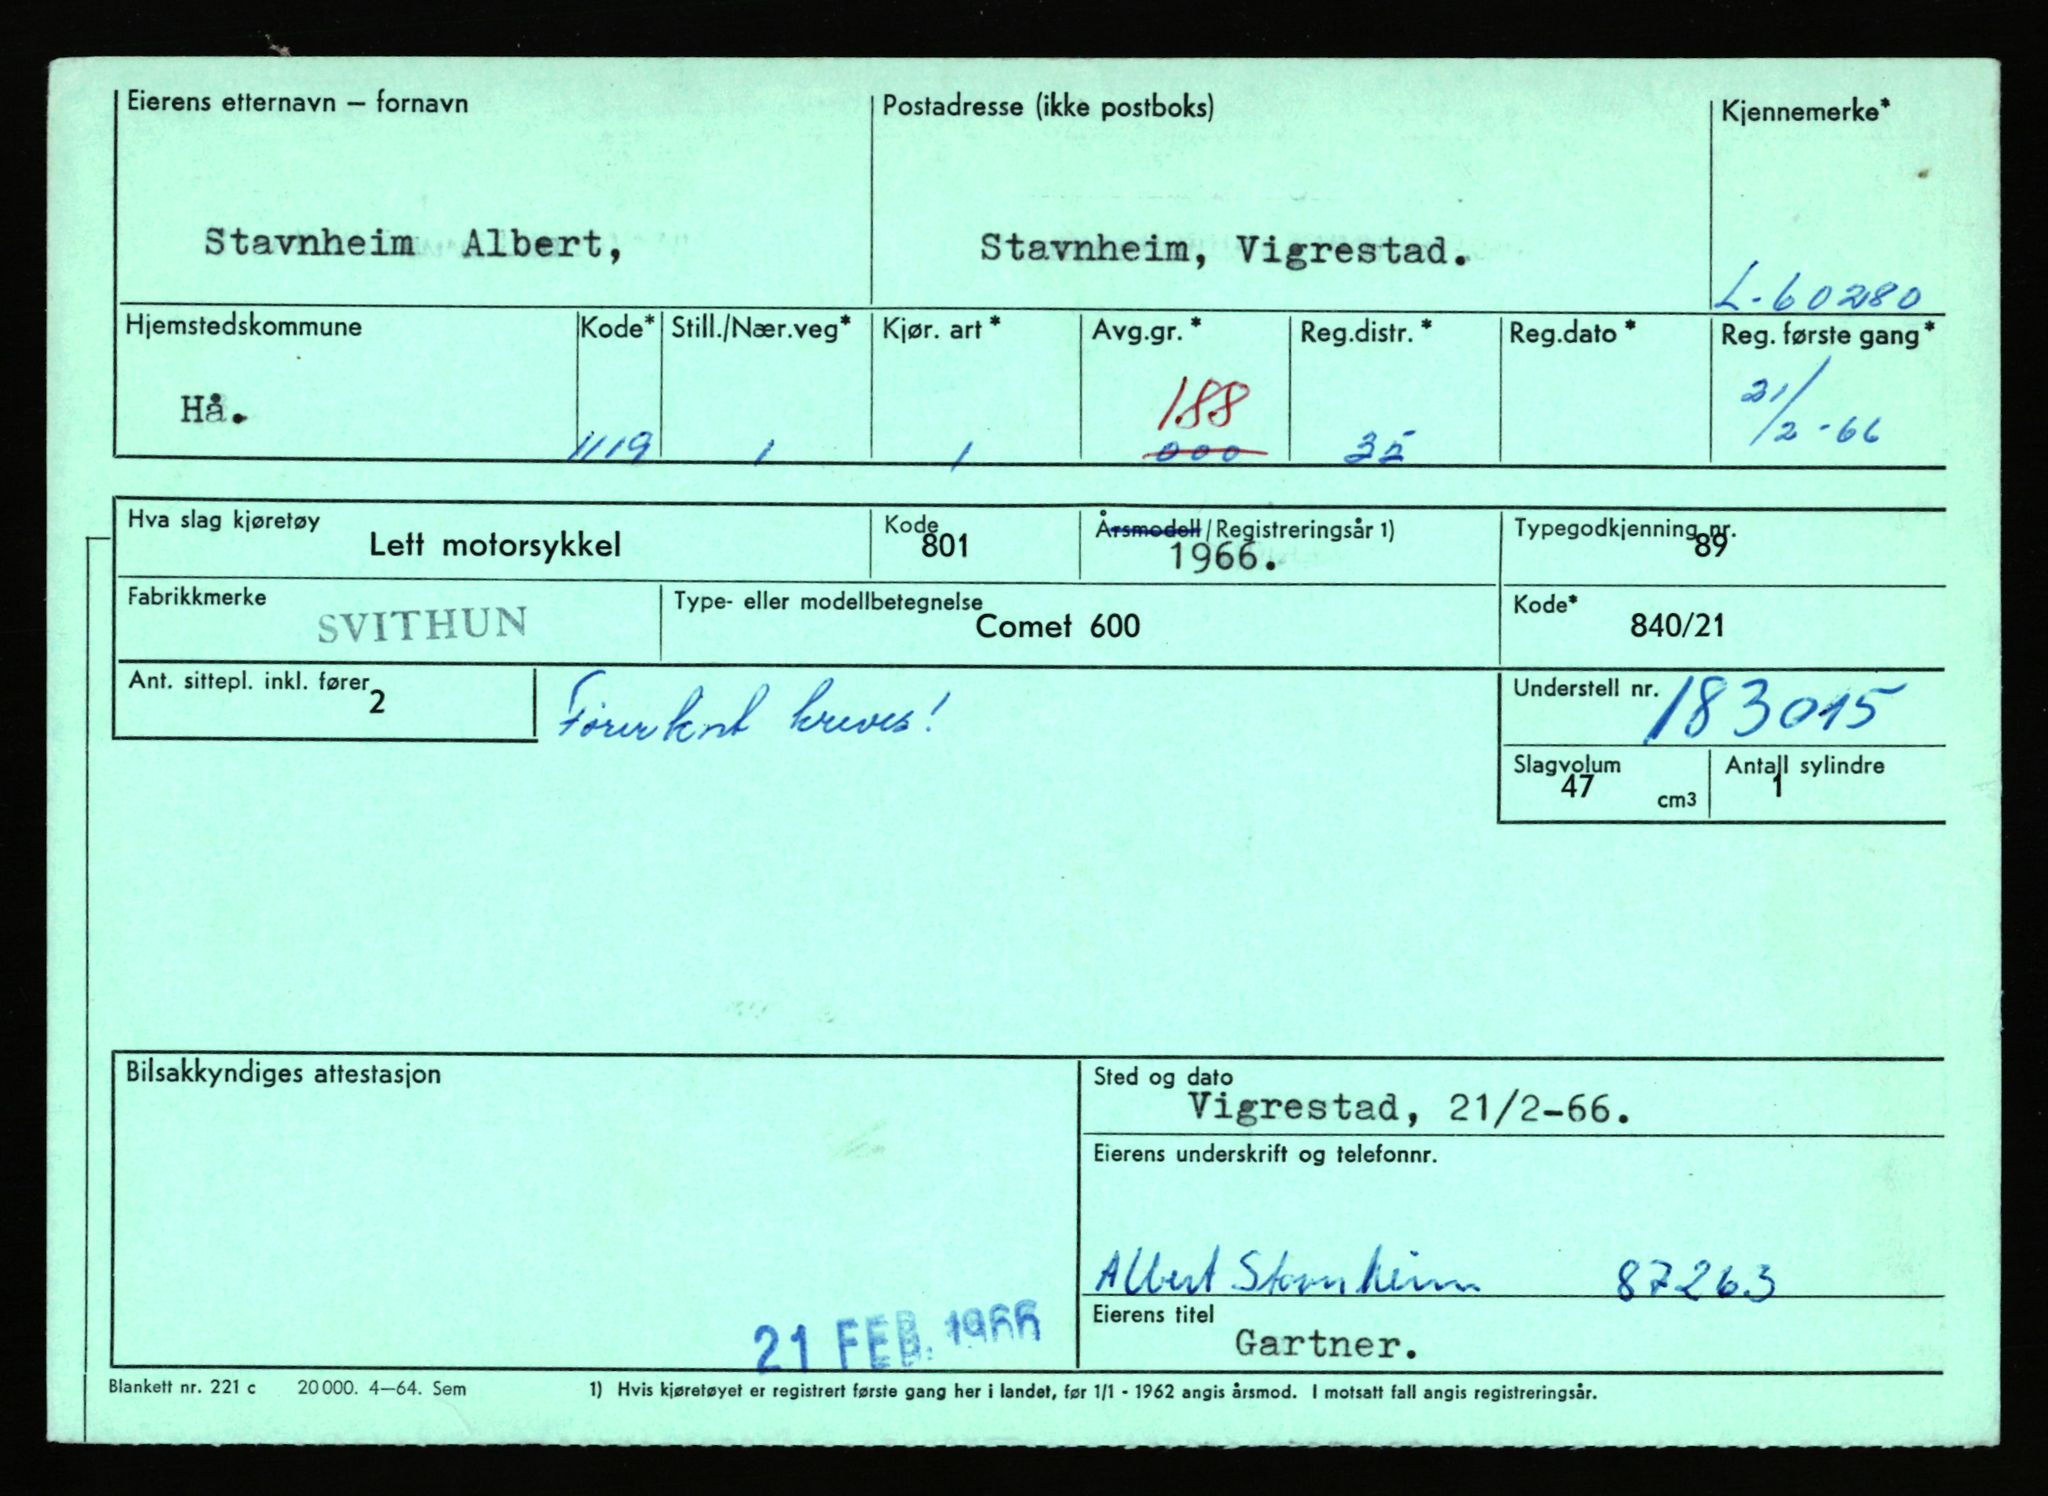 Eierens etternavn — fornavn
Postadresse (ikke postboks)
Kjennemerke*
Stavnheim Albert,
Stavnheim, Vigrestad.
L-60280
Hjemstedskommune
Kode*
Still./Nær.veg*
Kjør. art *
Avg.gr. *
Reg.distr. *
Reg.dato *
Reg. første gang*
Hå.
1119
1
1
188
000
35
21/2-66
Hva slag kjøretøy
Lett motorsykkel
Kode
801
Årsmodell/Registreringsår 1)
1966.
Typegodkjenning nr.
89
Fabrikkmerke
SVITHUN
Type- eller modellbetegnelse
Comet 600
Kode*
840/21
Ant. sittepl. inkl. fører
2
Førerkort kreves!
Understell nr.
183015
Slagvolum
47
cm3
Antall sylindre
1
Bilsakkyndiges attestasjon
21 FEB. 1966
Sted og dato
Vigrestad, 21/2-66.
Eierens underskrift og telefonnr.
Albert Stavnheim 87263
Eierens titel
Gartner.
Blankett nr. 221 c 20000. 4—64. Sem
1) Hvis kjøretøyet er registrert første gang her i landet, før 1/1 - 1962 angis årsmod. I motsatt fall angis registreringsår.